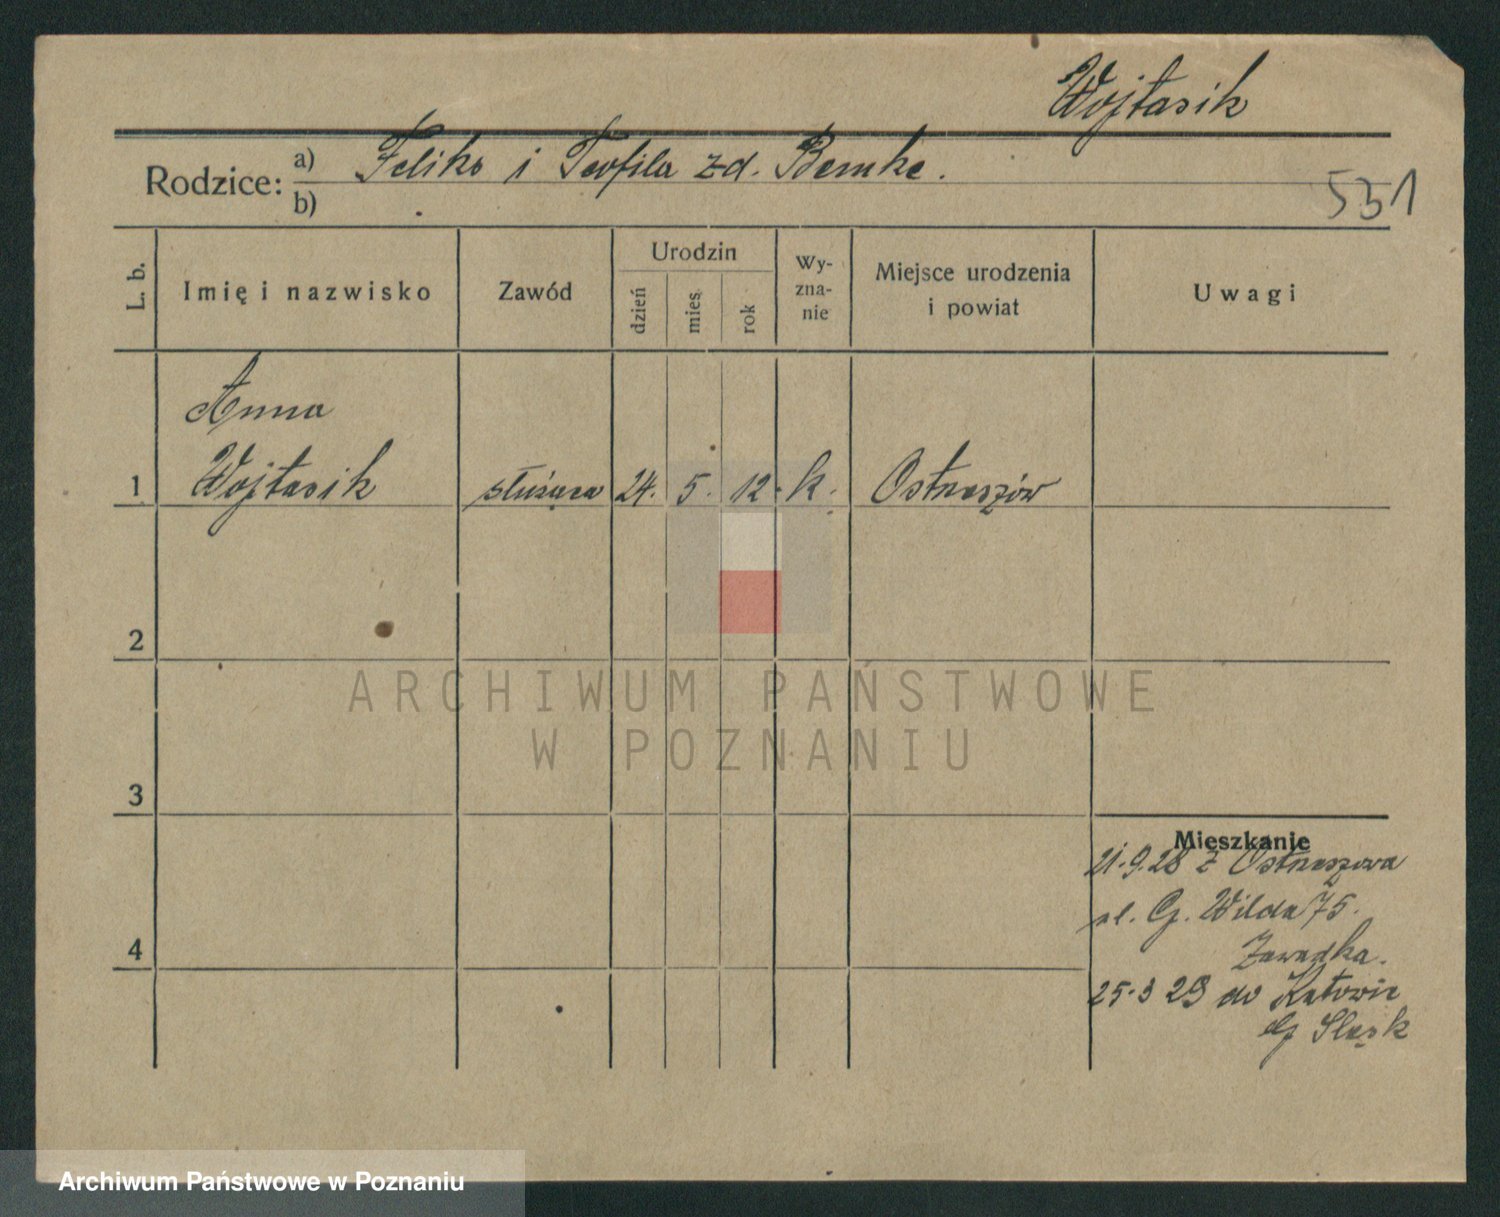 Wojtasik
Rodzice: a) Feliks i Teofila zd. Bemke.
b)
531
L. b. Imię i nazwisko Zawód Urodzin dzień mies. rok Wyznanie Miejsce urodzenia i powiat Uwagi
Anna
1 Wojtasik służąca 24. 5. 12. k. Ostrzeszów
2
3
4
Mieszkanie
21.9.28 z Ostrzeszowa
ul. G. Wilda 75.
Zawadka.
25.3 29 do Katowic
Śląsk
ARCHIWUM PAŃSTWOWE
W POZNANIU
Archiwum Państwowe w Poznaniu